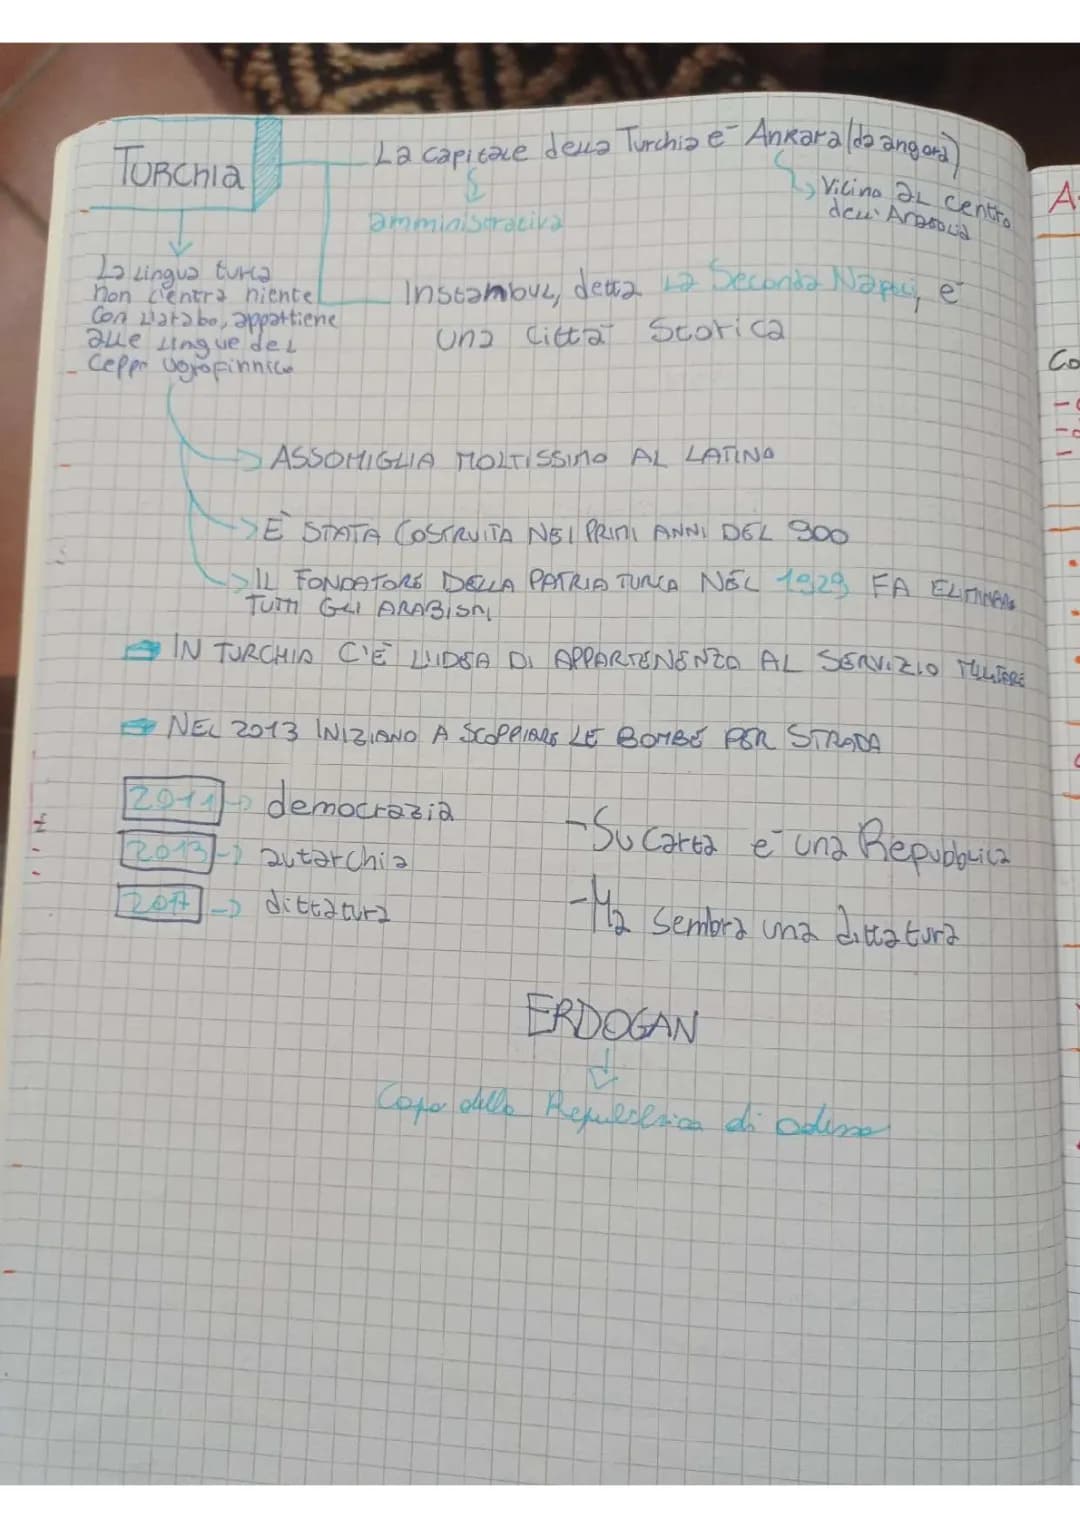 TURCHIA
La capitale della Turchia e' Ankara (da angora)
amministrativa
Vicino al centro
dell'Anatolia
La lingua turca
non c'entra niente
con l'arabo, appartiene
alle lingue del
ceppo Ugrofinnico
Instambul, detta La Seconda Napoli, e'
una città storica
ASSOMIGLIA MOLTISSIMO AL LATINO
È STATA COSTRUITA NEI PRIMI ANNI DEL 900
IL FONDATORE DELLA PATRIA TURCA NEL 1929 FA ELIMINARE
TUTTI GLI ARABISMI
IN TURCHIA C'È L'IDEA DI APPARTENENZA AL SERVIZIO MILITARE
NEL 2013 INIZIANO A SCOPPIARE LE BOMBE PER STRADA
2011 → democrazia
2013 → autarchia
2017 → dittatura
- Su carta e' una Repubblica
- Ma sembra una dittatura
ERDOGAN
Capo della Repubblica di adesso
A
Co